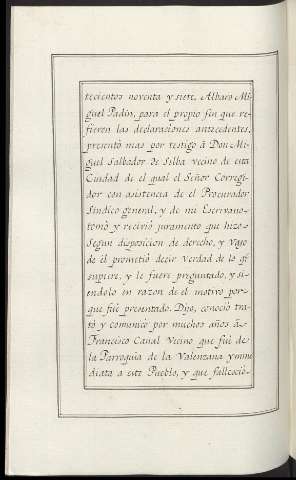 tecientos noventa y siete, Albaro Mi-
guel Padín, para el propio fin que re-
fieren las declarasiones antecedentes,
presentó mas por testigo á Don Mi-
guel Salbador de Silba vecino de esta
Ciudad de el qual el Señor Corregi-
dor con asistencia de el Procurador
Sindico general, y de mi Escrivano
tomó y recivió juramento que hizo
segun disposicion de derecho, y vajo
de el prometió decir verdad de lo qe
supiere, y le fuere preguntado, y si-
endolo en razon de el motivo por-
que fué presentado. Dijo, conoció tra-
tó y comunicó por muchos años á
Francisco Canal Vecino que fué de
la Parroquia de la Valenzana ynme
diata a este Pueblo, y que falleció